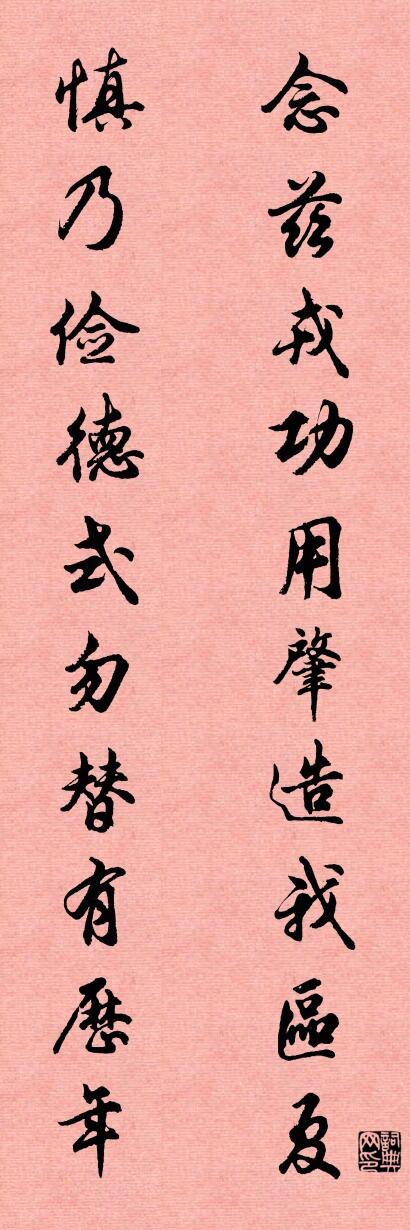 念茲戎功用肇造我區夏
慎乃儉德式勿替有歷年
詞典網印